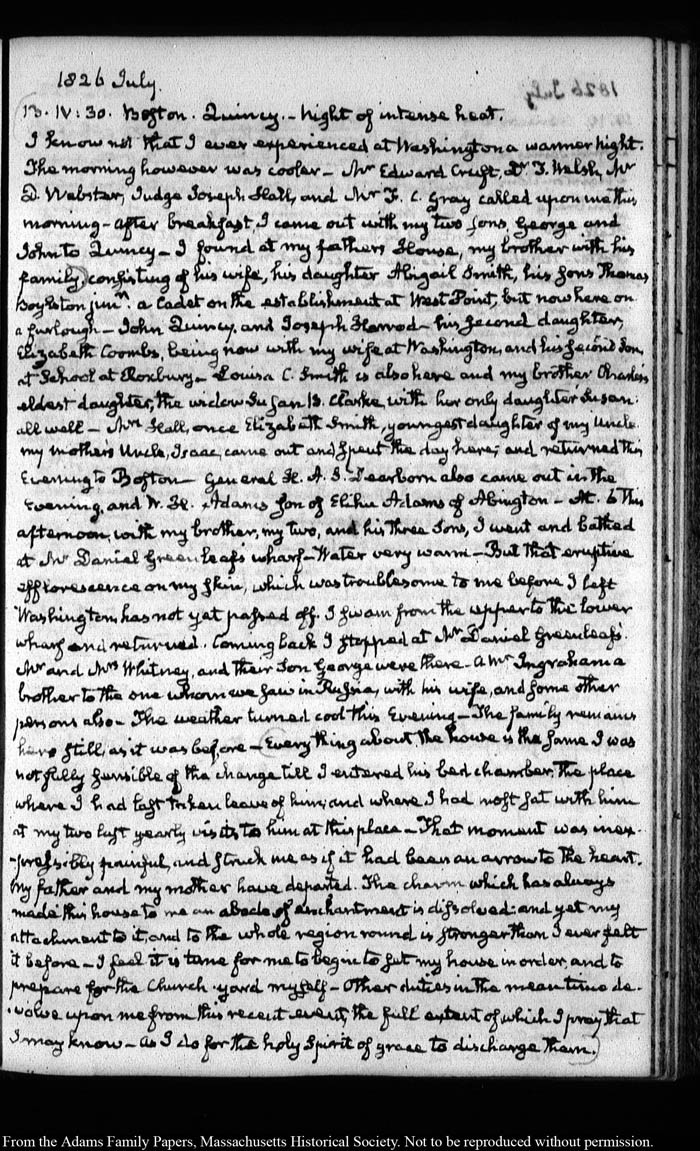 1826 July.
13. IV:30. Boston. Quincy. – Night of intense heat.
I know not that I ever experienced at Washington a warmer night.
The morning however was cooler – Mr Edward Cruft, Dr T. Welsh, Mr
D. Webster, Judge Joseph Hall, and Mr F. C. Gray called upon me this
morning – after breakfast, I came out with my two Sons, George and
John to Quincy – I found at my fathers House, my brother with his
family, consisting of his wife, his daughter Abigail Smith, his Sons Thomas
Boylston junr. a Cadet on the establishment at West Point, but now here on
a furlough – John Quincy, and Joseph Harrod – his second daughter,
Elizabeth Coombs, being now with my wife at Washington, and his second Son,
at School at Roxbury – Louisa C. Smith is also here and my brother Charles's
eldest daughter, the widow Susan B. Clarke with her only daughter Susan:
all well – Mrs Hall, once Elizabeth Smith, youngest daughter of my Uncle
my mothers Uncle, Isaac, came out and spent the day here; and returned this
Evening to Boston – General H. A. S. Dearborn also came out in the
Evening, and W. H. Adams son of Elihu Adams of Abington – At 6 this
afternoon, with my brother, my two, and his three Sons, I went and bathed
at Mr Daniel Greenleaf's wharf – Water very warm – But that eruptive
efflorescence on my skin, which was troublesome to me before I left
Washington has not yet passed off. I swam from the upper to the lower
wharf and returned. Coming back I stopped at Mr Daniel Greenleaf's.
Mr and Mrs Whitney, and their Son George were there – a Mr Ingraham a
brother to the one whom we saw in Russia, with his wife, and some other
persons also – The weather turned cool this Evening – The family remains
here still, as it was before – Every thing about the house is the same I was
not fully sensible of the change till I entered his bed chamber, the place
where I had last taken leave of him; and where I had most sat with him
at my two last yearly visits to him at this place – That moment was inex-
-pressibly painful, and struck me as if it had been an arrow to the heart.
My father and my mother have departed. The charm which has always
made this house to me an abode of enchantment is dissolved: and yet my
attachment to it, and to the whole region round is stronger than I ever felt
it before – I feel it is time for me to begin to set my house in order, and to
prepare for the Church-yard myself – Other duties in the mean time de-
-volve upon me from this recent event, the full extent of which I pray that
I may know – as I do for the holy Spirit of grace to discharge them.
From the Adams Family Papers, Massachusetts Historical Society. Not to be reproduced without permission.